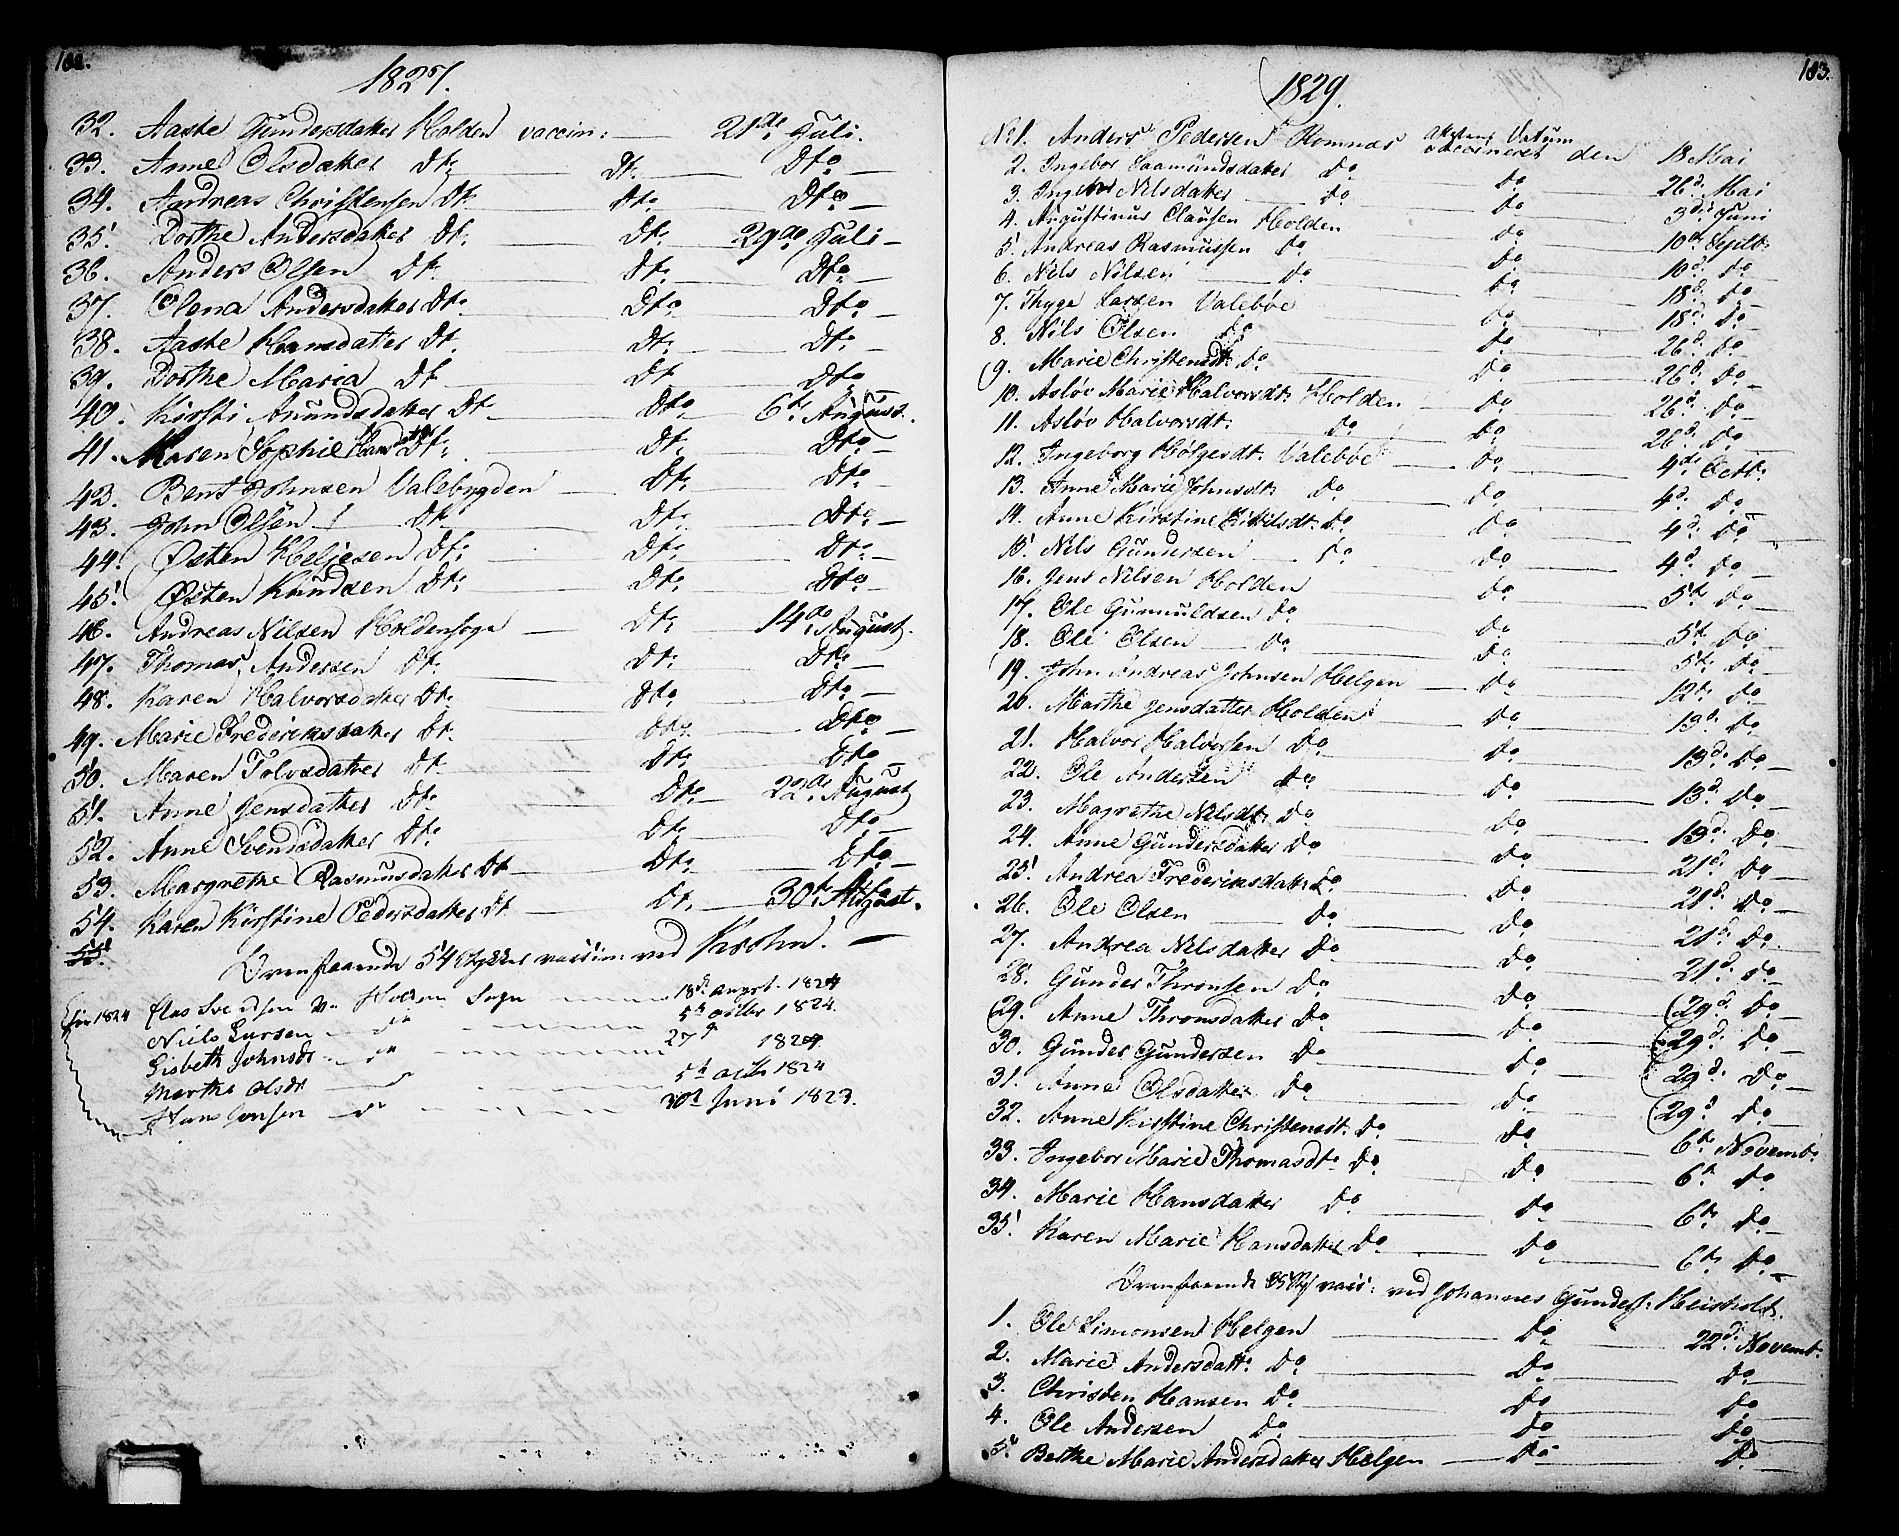 102.
1827.
32. Aaste Gundersdatter Holden vaccin: 21de Juli.
33. Anne Olsdatter Dt: Dt. Dto
34. Andreas Christensen Dt. Dto Dto
35. Dorthe Andersdatter Dt. Dt. 29de Juli
36. Anders Olsen Dt. Dto Dto
37. Olena Andersdatter Dto Dto Dto
38. Aaste Hansdatter Dt. Dt. Dto
39. Dorthe Maria Dt. Dt. Dto
40. Kirsti Amundsdatter Dt. Dto 6te August.
41. Maren Sophie Hansdatter Dt. Dt. Dto
42. Bent Johnsen Valebygden Dt. Dto
43. John Olsen Dt. Dt. Dto
44. Østen Heljesen Dt. Dto Dto
45. Østen Knudsen Dt. Dto Dto
46. Andreas Nilsen Holdensogn Dt. 14de August.
47. Thomas Andersen Dt. Dt. Dto
48. Karen Halvorsdatter Dt. Dto Dto
49. Marie Frederiksdatter Dt. Dto Dto
50. Maren Tolvsdatter Dt. Dt. Dto
51. Anne Jensdatter Dt. Dto 22de August
52. Anne Svendsdatter Dt. Dt. Dto
53. Margrethe Rasmusdatter Dt. Dto Dto
54. Karen Kirstine Pedersdatter Dt. Dt. 30te August.
55.
Ovenstaaende 54 Stykker vaccin: ved Krohn.
1824 Svendsen Holden Sogn 18de augst. 1824
Niels Larsen do 5te octbr 1824.
Lisbeth Johnsdr. do 27d 1824
Marthe Olsdr do 5te octbr 1824
Hans Jensen do 30te Juni 1823.
103.
1829.
No 1. Anders Pedersen Romnæs vaccineret Datum den 18 Mai
2. Ingebor Saamundsdatter Do Do 26d. Mai
3. Ingebor Nilsdatter Do Do 3die Juni
4. Augustinus Clausen Holden Do 10de Septb:
5. Andreas Rasmussen Do Do 10d. Do
6. Nils Nilsen Do Do 18d. Do
7. Thyge Larsen Valebøe Do 18d. Do
8. Nils Olsen Do Do 26d. Do
9. Marie Christensdt: Do Do 26d. Do
10. Asløv Marie Halvorsdt. Holden Do 26d. Do
11. Asløv Halvorsdt: Do Do 26d. Do
12. Ingeborg Holgesdt. Valebøe Do 4de Octb:
13. Anne Marie Johnsdt. Do Do 4d. Do
14. Anne Kirstine Kittilsdt. Do Do 4d. Do
15. Nils Gundersen Do Do 4d. Do
16. Jens Nilsen Holden Do 5te Do
17. Ole Gunnuldsen Do Do 5te Do
18. Ole Olsen Do Do 5te Do
19. John Andreas Johnsen Helgen Do 12te Do
20. Marthe Jensdatter Holden Do 13d. Do
21. Halvor Halvorsen Do Do 13d. Do
22. Ole Andersen Do Do 13d. Do
23. Magrethe Nilsdt. Do Do 13d. Do
24. Anne Gundersdatter Do Do 21d. Do
25. Andrea Frederiksdatter Do Do 21d. Do
26. Ole Olsen Do Do 21d. Do
27. Andrea Nilsdatter Do Do 21d. Do
28. Gunder Thronsen Do Do 29d. Do
29. Anne Thronsdatter Do Do 29d. Do
30. Gunder Gundersen Do Do 29d. Do
31. Anne Olsdatter Do Do 29d. Do
32. Anne Kirstine Christensdt. Do Do 6te Novemb:
33. Ingebor Marie Thomasdt. Do Do 6te Do
34. Marie Hansdatter Do Do 6te Do
35. Karen Marie Hansdatter Do Do 6te Do
Ovenstaaende 35 St vacc: ved Johannes Gunders: Heisholt.
1. Ole Simonsen Helgen Do 22d. Novemb:
2. Marie Andersdatt: Do Do Do
3. Christen Hansen Do Do Do
4. Ole Andersen Do Do Do
5. Berthe Marie Andersdatter Helgen Do Do